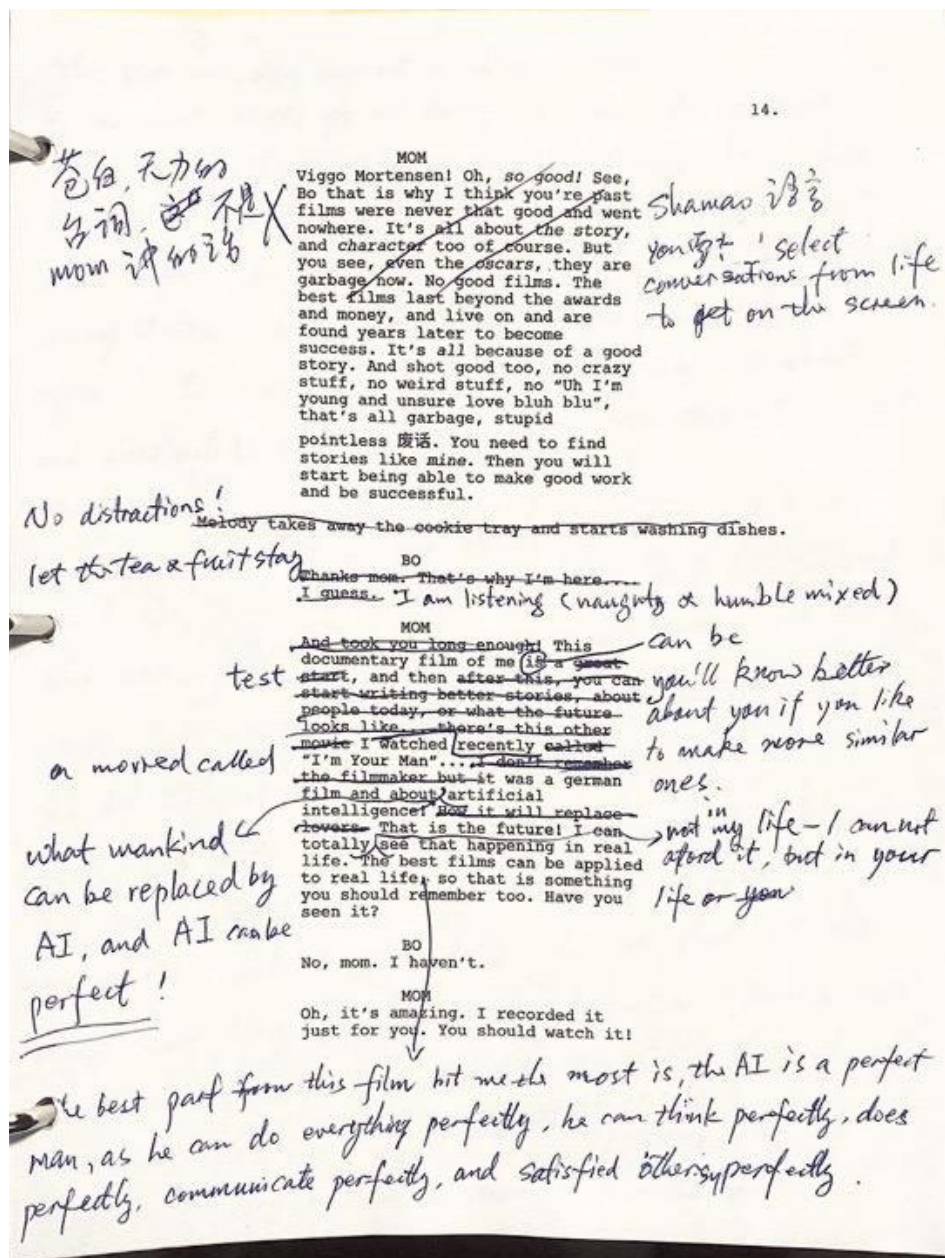 14.
苍白,无力的
台词,不是
mom 讲的话
MOM
Viggo Mortensen! Oh, so good! See,
Bo that is why I think you're past
films were never that good and went
nowhere. It's all about the story,
and character too of course. But
you see, even the oscars, they are
garbage now. No good films. The
best films last beyond the awards
and money, and live on and are
found years later to become
success. It's all because of a good
story. And shot good too, no crazy
stuff, no weird stuff, no "Uh I'm
young and unsure love bluh blu",
that's all garbage, stupid
pointless 废话. You need to find
stories like mine. Then you will
start being able to make good work
and be successful.
select
conversations from life
to get on the screen.
No distractions!
Melody takes away the cookie tray and starts washing dishes.
let the tea & fruit stay
BO
Thanks mom. That's why I'm here....
I guess. I am listening (naughty & humble mixed)
MOM
And took you long enough! This
documentary film of me is a great
start, and then after this, you can
start writing better stories, about
people today, or what the future
looks like... there's this other
movie I watched recently called
"I'm Your Man"....I don't remember
the filmmaker but it was a german
film and about artificial
intelligence! How it will replace
lovers. That is the future! I can
totally see that happening in real
life. The best films can be applied
to real life, so that is something
you should remember too. Have you
seen it?
test
a movied called
what mankind
can be replaced by
AI, and AI can be
perfect!
can be
you'll know better
about you if you like
to make more similar
ones.
not in my life - I can not
aford it, but in your
life or you
BO
No, mom. I haven't.
MOM
Oh, it's amazing. I recorded it
just for you. You should watch it!
The best part from this film hit me the most is, the AI is a perfect
man, as he can do everything perfectly, he can think perfectly, does
perfectly, communicate perfectly, and satisfied perfectly.